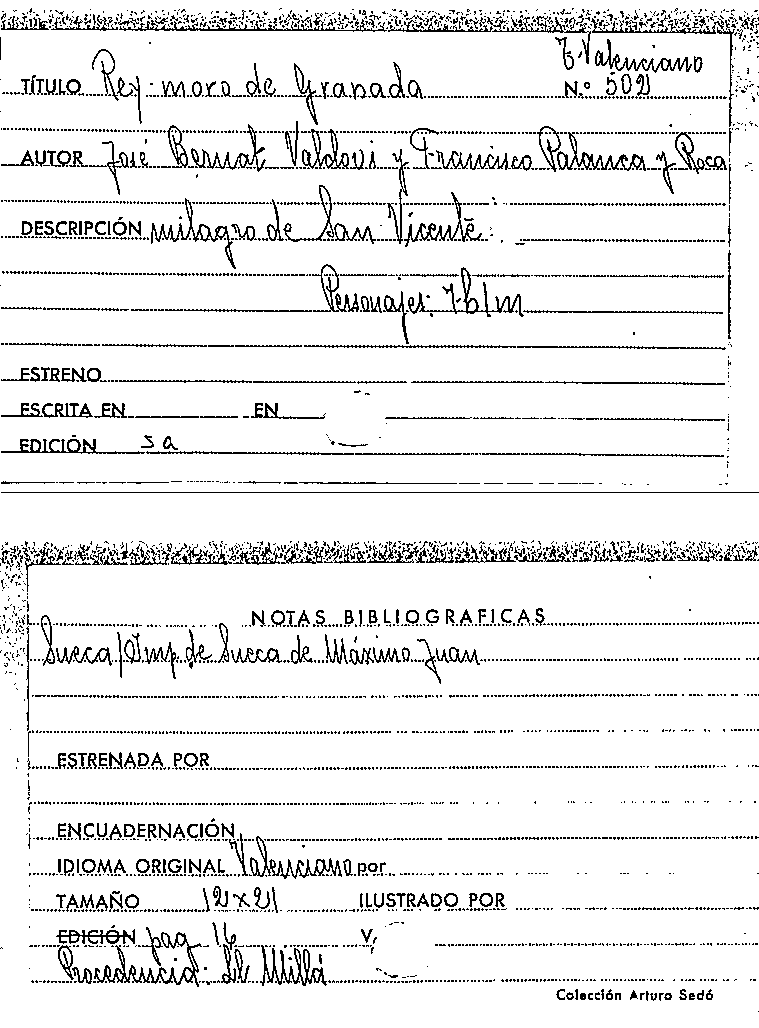 T. Valenciano
TÍTULO Rey moro de Granada N.º 502
AUTOR José Bernat Valdovi y Francisco Palanca y Roca
DESCRIPCIÓN milagro de San Vicente.
Personajes: 7 h/m
ESTRENO
ESCRITA EN EN
EDICIÓN s a
NOTAS BIBLIOGRAFICAS
Sueca/Imp. de Sueca de Máximo Juan
ESTRENADA POR
ENCUADERNACIÓN
IDIOMA ORIGINAL Valenciano por
TAMAÑO 12x21 ILUSTRADO POR
EDICIÓN pag 16 V.
Procedencia: Ll Millá
Colección Arturo Sedó